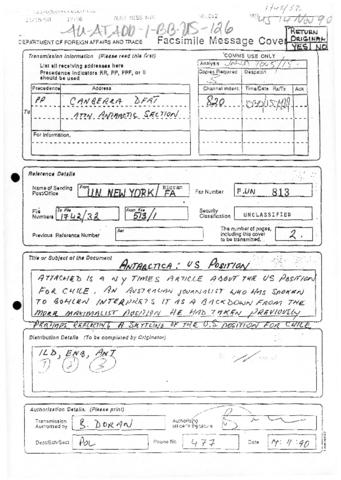 AU-ATADD-1-BB-US-126
RETURN
ORIGINAL
YES NO
DEPARTMENT OF FOREIGN AFFAIRS AND TRADE
Facsimile Message Cover
Transmission Information (Please read this first)
COMMS USE ONLY
List all receiving addresses here
Precedence indicators RR, PP, PPF, or II
should be used
Copies Prepared
Despatch
Precedence Address
Channel indent. Time/Date Rx/Tx Ack
PP CANBERRA DFAT
820
TO
ATTN. ANTARCTIC SECTION
For information.
Reference Details
Name of Sending
Post/Office
From
UN NEW YORK
FA
Fax Number
F.UN 813
File
Numbers
1742/32
513/1
Security
Classification
UNCLASSIFIED
Previous Reference Number
The number of pages,
including this cover
to be transmitted.
2.
Title or Subject of the Document
ANTARCTICA: US POSITION
ATTACHED IS A NY TIMES ARTICLE ABOUT THE US POSITION
FOR CHILE. AN AUSTRALIAN JOURNALIST WHO HAS SPOKEN
TO BOHLEN INTERPRETS IT AS A BACKDOWN FROM THE
MORE MAXIMALIST POSITION HE HAD TAKEN PREVIOUSLY
PERHAPS REFLECTING A SETTLING OF THE U.S. POSITION FOR CHILE
Distribution Details (To be completed by Originator)
ILD, ENB, ANT
1 2 3
Authorization Details. (Please print)
Transmission
Authorised by
B. DORAN
Authorising
officer's signature
Dept/Sch/Sect
POL
Phone No.
477
Date